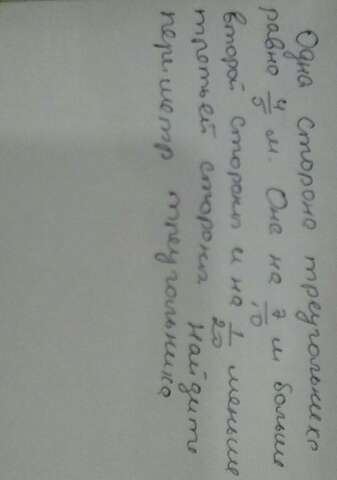 Одна сторона треугольника
равна 4/5 м. Она на 7/10 м больше
второй стороны и на 1/20 меньше
третьей стороны найдите
периметр треугольника